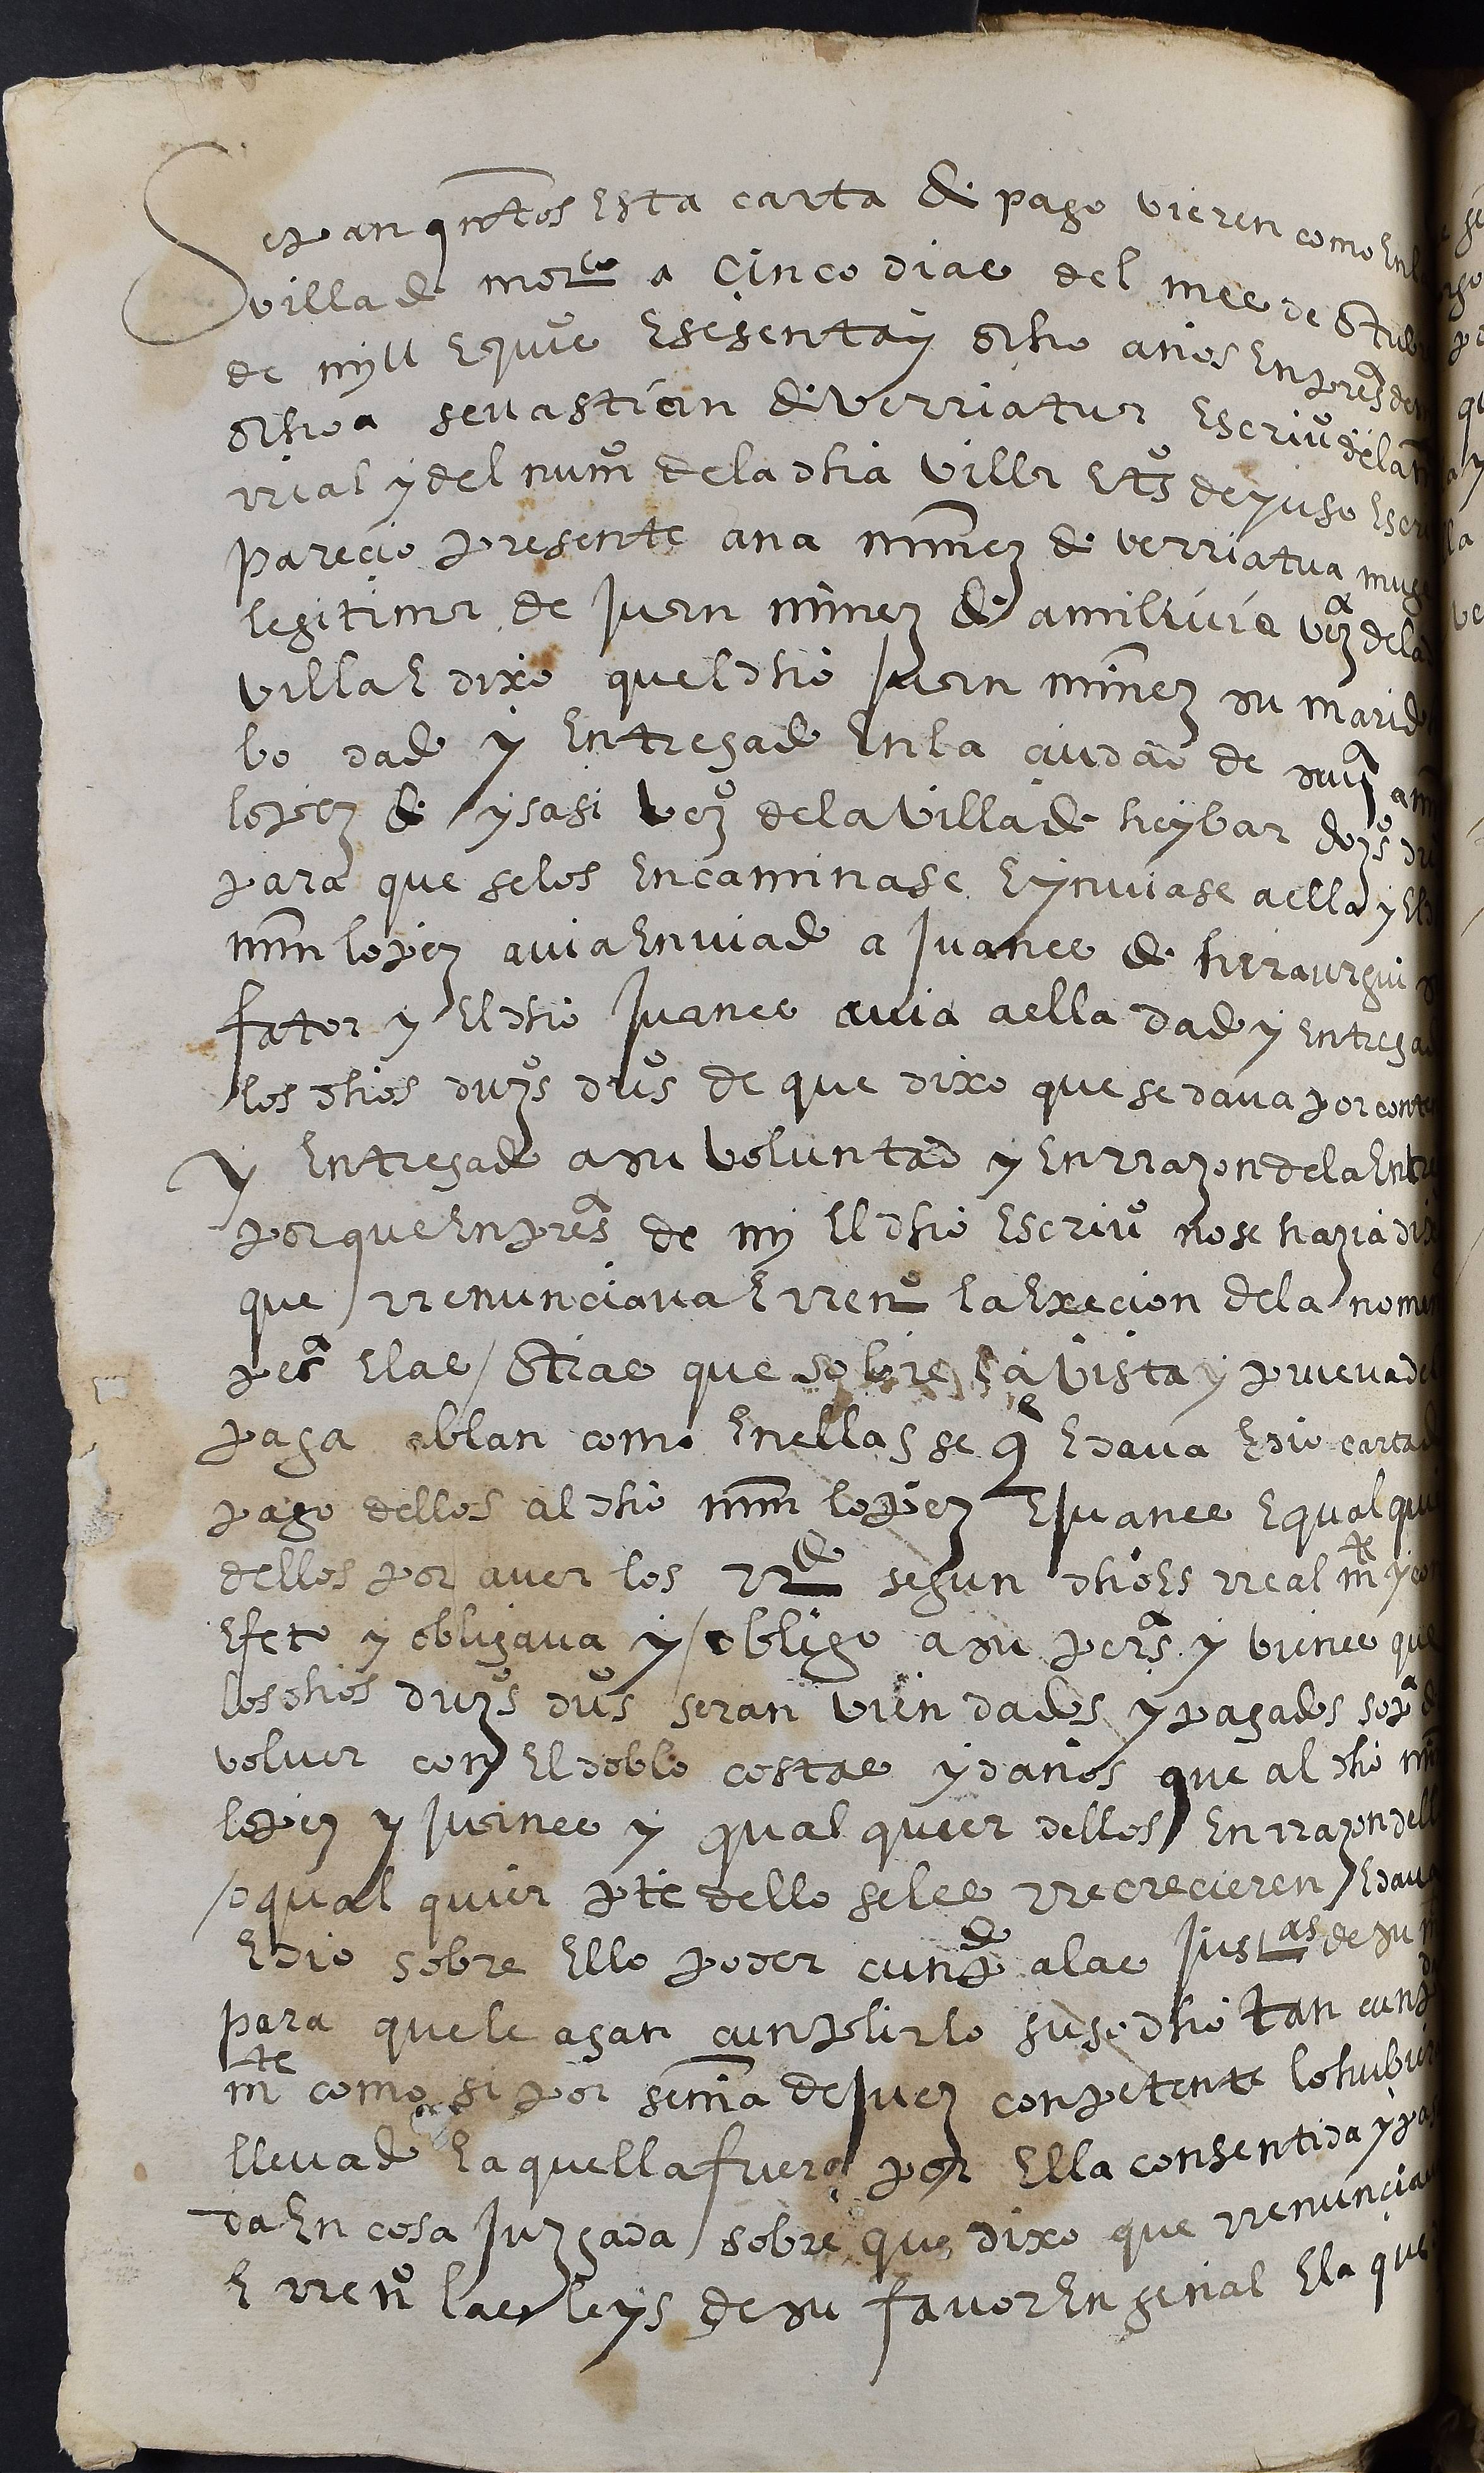 Sepan qntos Esta carta de pago vieren como Enla
villa de motco a cinco dias del mes de Otub
de mill E quis E sesenta y ocho años En presª de
ochoa sevastian de verriatua Escrivº de la
rreal y del numº de la dha villa E tsº de yuso Escr
parecio presente ana mnez de verriatua muge
legitima de Juan mnez de amilivia vezª de la
villa E dixo quel dho Juan mnez su marido
lo dado y Entregado En la ciudad de sevª a mnn
lopez de ysasi vezº de la villa de heybar dozºs du
para que se los Encaminase E ynviase a ella y El
mnn lopez avia Enviado a Juanes de hiraurgui
fator y El dho Juanes avia a ella dado y Entregad
los dhos duzºs dusº de que dixo que se dava por conten
y Entregado a su voluntad y En rrazon de la Entre
porque En presª de mi El dho Escrivº no se hazia dix
que rrenunciava E rrenº la Execion de la nomen
pesª E las otras que sobre la vista y prueva del
paga ablan como En ellas se qe E dava E dio carta de
pago dellos al dho mnn lopez E Juanes E qual qui
dellos por aver los rrdo segun dho Es rreal mte y con
Efeto y obligava y obligo a su persª y vienes que
los dhos duzºs dusº seran vien dados y pagados so pª de
volver con El doblo costas y daños que al dho mnn
lopez y Juanes y qual quier dellos En rrazon dell
o qual quier pte dello se les rrecrecieren E dava
E dio sobre Ello poder cunpdo a las Justas de su m
para que le agan cunplir lo suso dho tan cunp
mte como si por senna de Juez conpetente lo hubier
llevado E aquella fuera por Ella consentida y pa
da En cosa Juzgada sobre que dixo que rrenuncia
E rrenº las leys de su favor En genal E la que